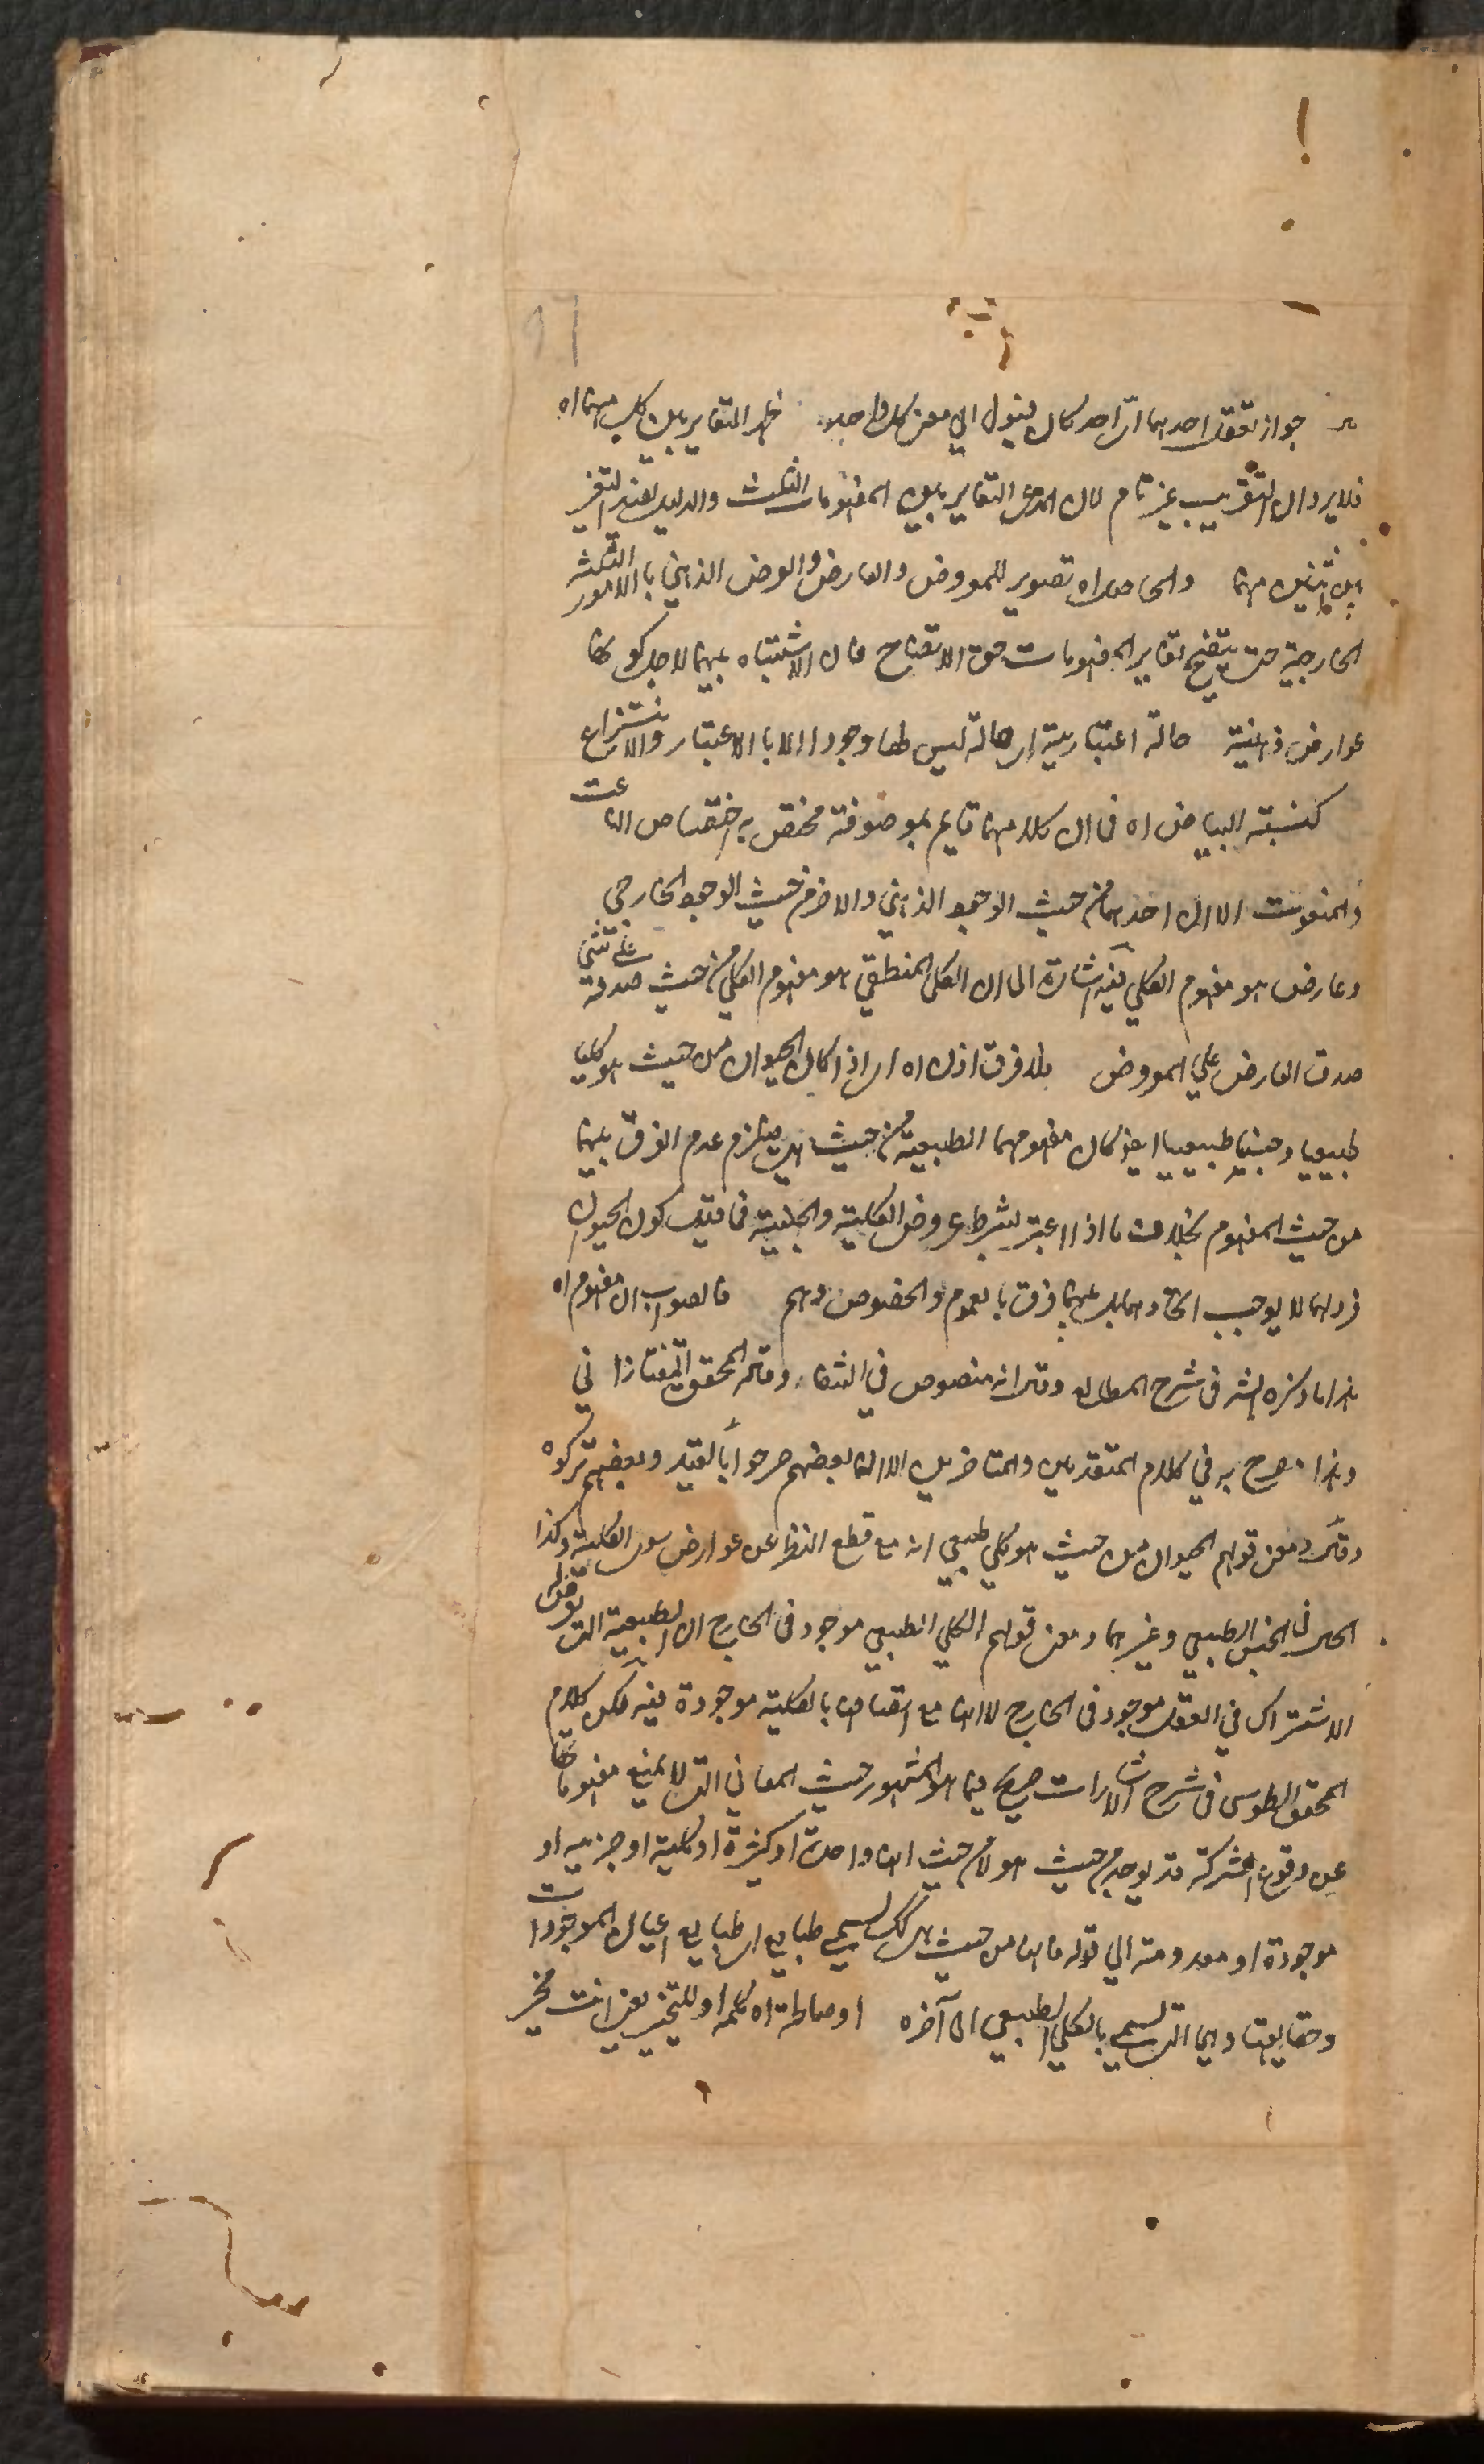 جواز تعقل احدهما اى احد كان فيؤل الى معنى كل واحد ظهر التغاير بين كل منها اه
فلا يرد ان التقريب غير تام لان المدعى التغاير بين المفهومات الثلث والدليل يفيد التغير
بين اثنين منها والحاصل اه تصوير للمعروض والعارض والعرض الذهني بالامور الثلثة
الخارجية حتى يتضح تغاير المفهومات حق الاتضاح فان الاشتباه بينها لاجل كونها
عوارض ذهنية حالة اعتبارية اى حالة ليس لها وجود الا بالاعتبار والانتزاع
كنسبة البياض اه فى ان كلا منها قايم بموصوفة مختص به اختصاص الناعت
والمنعوت الا ان احدهما من حيث الوجود الذهني والاخر من حيث الوجود الخارجي
وعارض هو مفهوم الكلي فيه اشارة الى ان الكلي المنطقي هو مفهوم الكلي من حيث صدقه على شئ
صدق العارض على المعروض فلا فرق اذن اه اى اذا كان الحيوان من حيث هو كليا
طبيعيا وجنسا طبيعيا اعني كان مفهومهما الطبيعة من حيث هى يلزم عدم الفرق بينهما
من حيث المفهوم بخلاف ما اذا اعتبر بشرط عروض الكلية والجنسية فما قيل كون الحيوان
فردا لهما لا يوجب اتحادهما بل بينهما فرق بالعموم والخصوص وهم فالصواب ان مفهوم اه
هذا ما ذكره الش فى شرح المطالع وقال انه منصوص في الشفاء وقال المحقق التفتازاني
وهذا مصرح به في كلام المتقدمين والمتاخرين الا ان بعضهم صرحوا بالقيد وبعضهم تركوه
وقال ومعنى قولهم الحيوان من حيث هو كلي طبيعي انه مع قطع النظر عن عوارض سوى الكلية وكذا
الحال فى الجنس الطبيعي وغيرهما ومعنى قولهم الكلي الطبيعي موجود فى الخارج ان الطبيعة التي يعرض لها
الاشتراك في العقل موجود فى الخارج لا انها مع اتصافها بالكلية موجودة فيه لكن كلام
المحقق الطوسى فى شرح الاشارات صريح فيما هو المشهور حيث المعاني التى لا يمنع مفهوماتها
عن وقوع الشركة قد يوجد من حيث هو لا من حيث انها واحدة او كثيرة او كلية او جزيية او
موجودة او معدومة الي قوله فانها من حيث هى كك يسمى طبايع اى طبايع اعيان الموجودات
وحقايقها وهى التى يسمى بالكلي الطبيعي الى آخره او صاهلة اه كلمة او للتخيير يعنى انت مخير